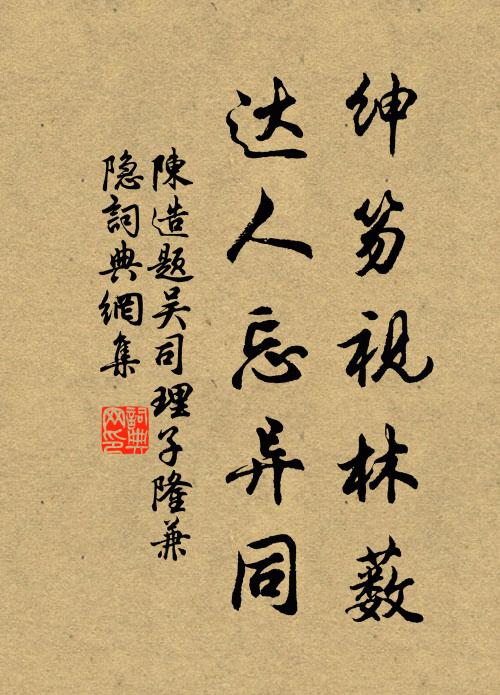 绅笏视林薮
达人忘异同
陳造题吴司理子隆兼
隐詞典網集
詞典网印